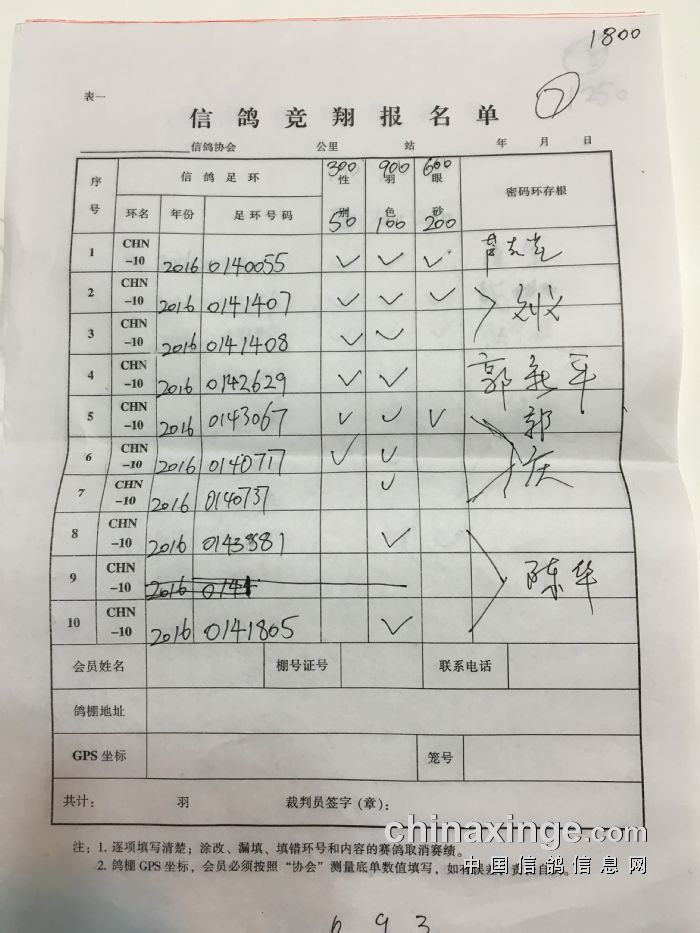 1800
表一
信鸽竞翔报名单
7
信鸽协会 公里 站 年 月 日
序号 信鸽足环 性别 羽色 眼砂 密码环存根
300 900 600
环名 年份 足环号码 50 100 200
1 CHN-10 2016 0140055 ✓ ✓ ✓
2 CHN-10 2016 0141407 ✓ ✓ ✓
3 CHN-10 2016 0141408 ✓ ✓
4 CHN-10 2016 0142629 ✓ ✓ 郭新平
5 CHN-10 2016 0143067 ✓ ✓ ✓ 郭
6 CHN-10 2016 0140717 ✓ ✓ 庆
7 CHN-10 2016 0140737 ✓
8 CHN-10 2016 ✓
9 CHN-10 2016 0141 陈华
10 CHN-10 2016 0141805 ✓
会员姓名 棚号证号 联系电话
鸽棚地址
GPS坐标 笼号
共计： 羽 裁判员签字（章）：
chinaxinge.com
注：1. 逐项填写清楚；涂改、漏填、填错环号和内容的赛鸽取消赛绩。
2. 鸽棚GPS坐标，会员必须按照“协会”测量底单数值填写，如有误差，责任自负。
中国信鸽信息网
693